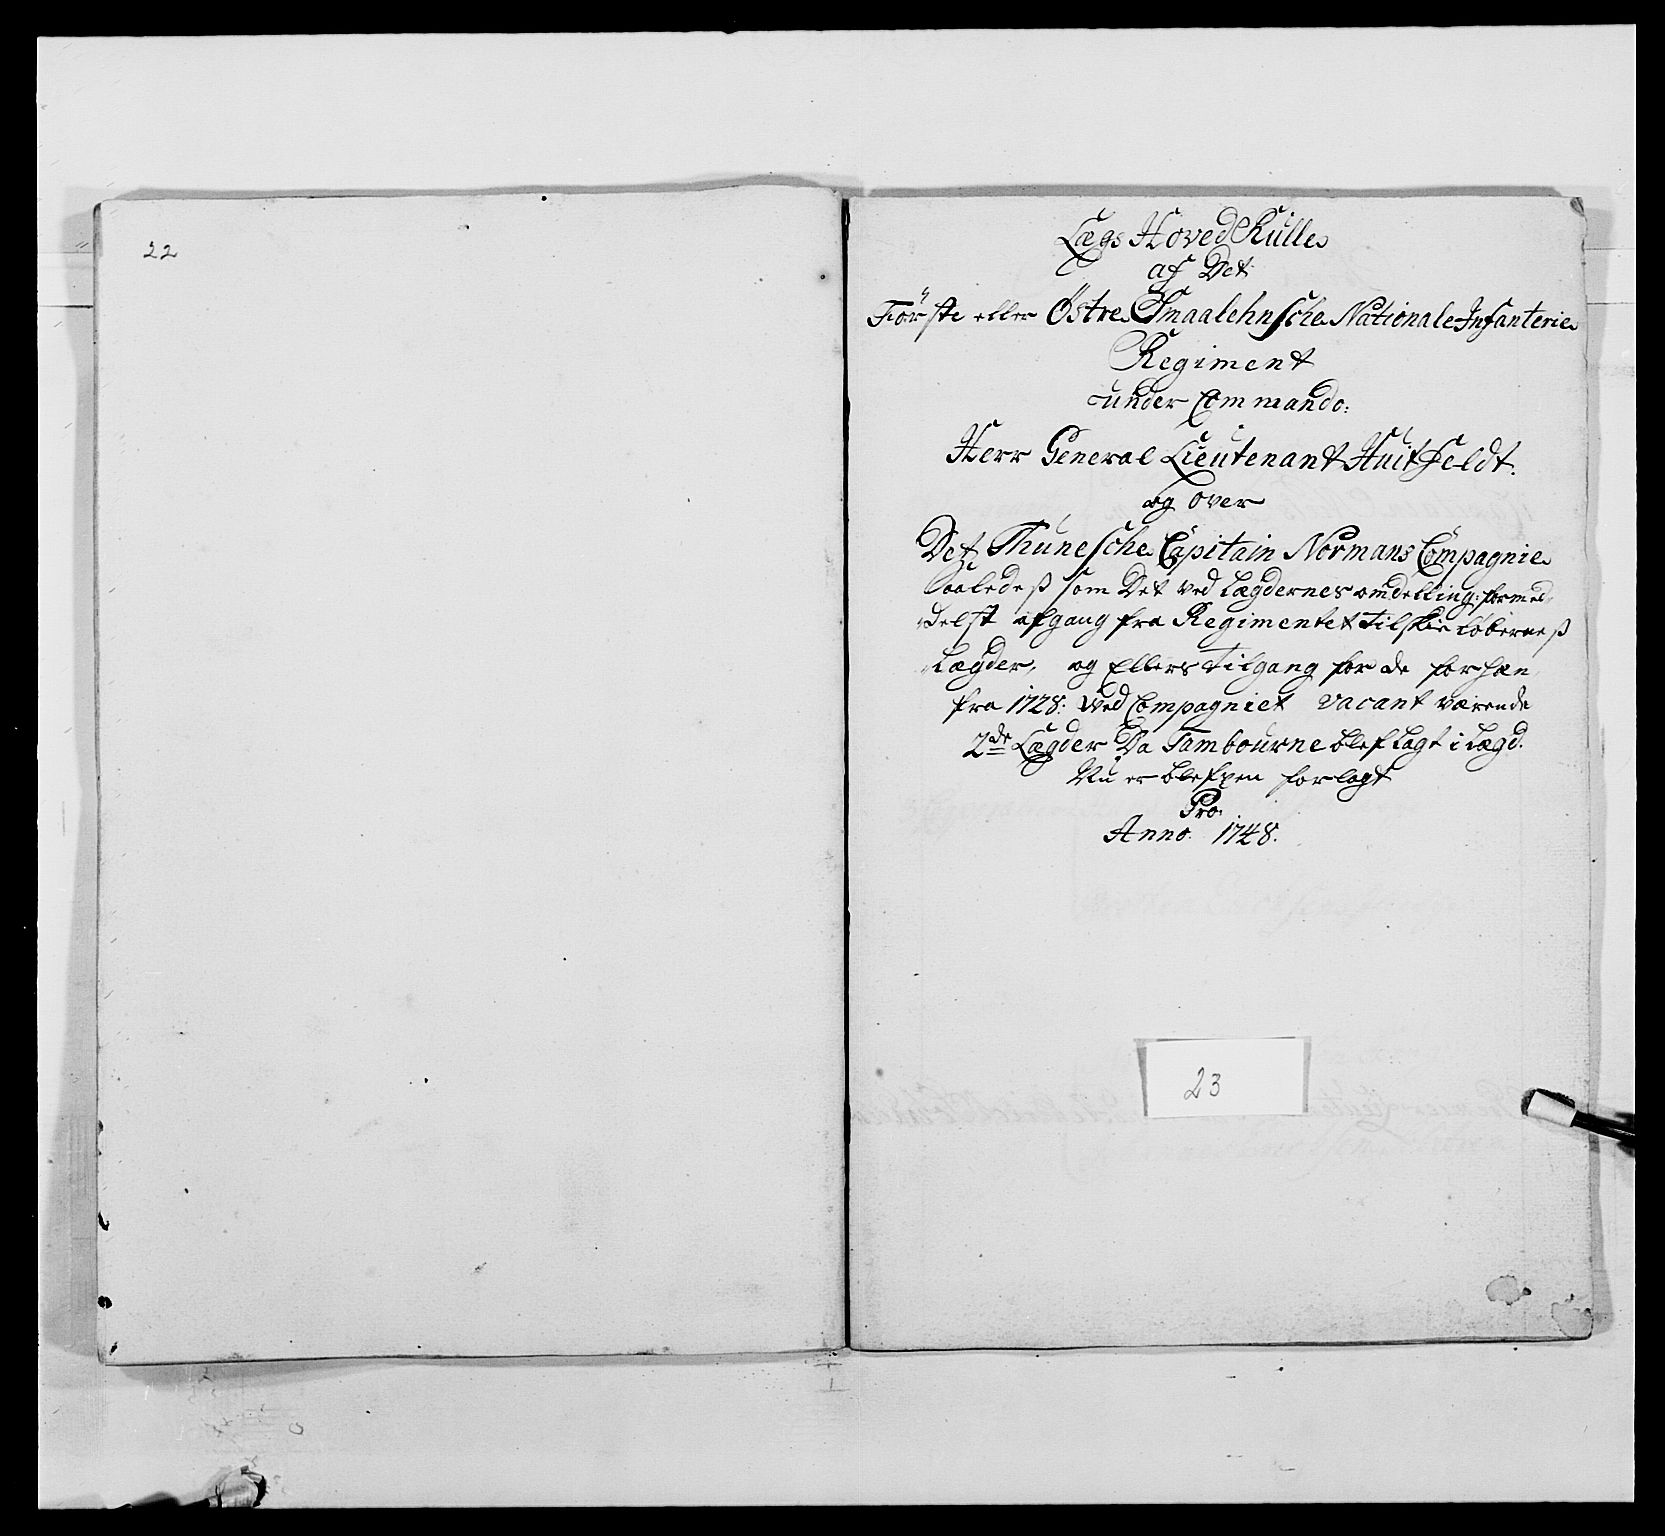 22
Lægs Hoved Rulle
af Det
Förste eller Östre Smaalehnsche Nationale Infanterie
Regiment
under Commando:
Herr General Lieutenant Huitfeldt:
og over
Det Thunesche Capitain Normans Compagnie
saaledeß som Det ved Lægdernes omdelling: formed
delst afgang fra Regimentet til skie Löberneß
Lægder, og Ellers tilgang for de forhæn
fra 1728: ved Compagniet vacant værende
2de Lægder Da Tambourne blef lagt i Lægd.
Nu er blefven forlagt
Pro:
Anno: 1748.
23